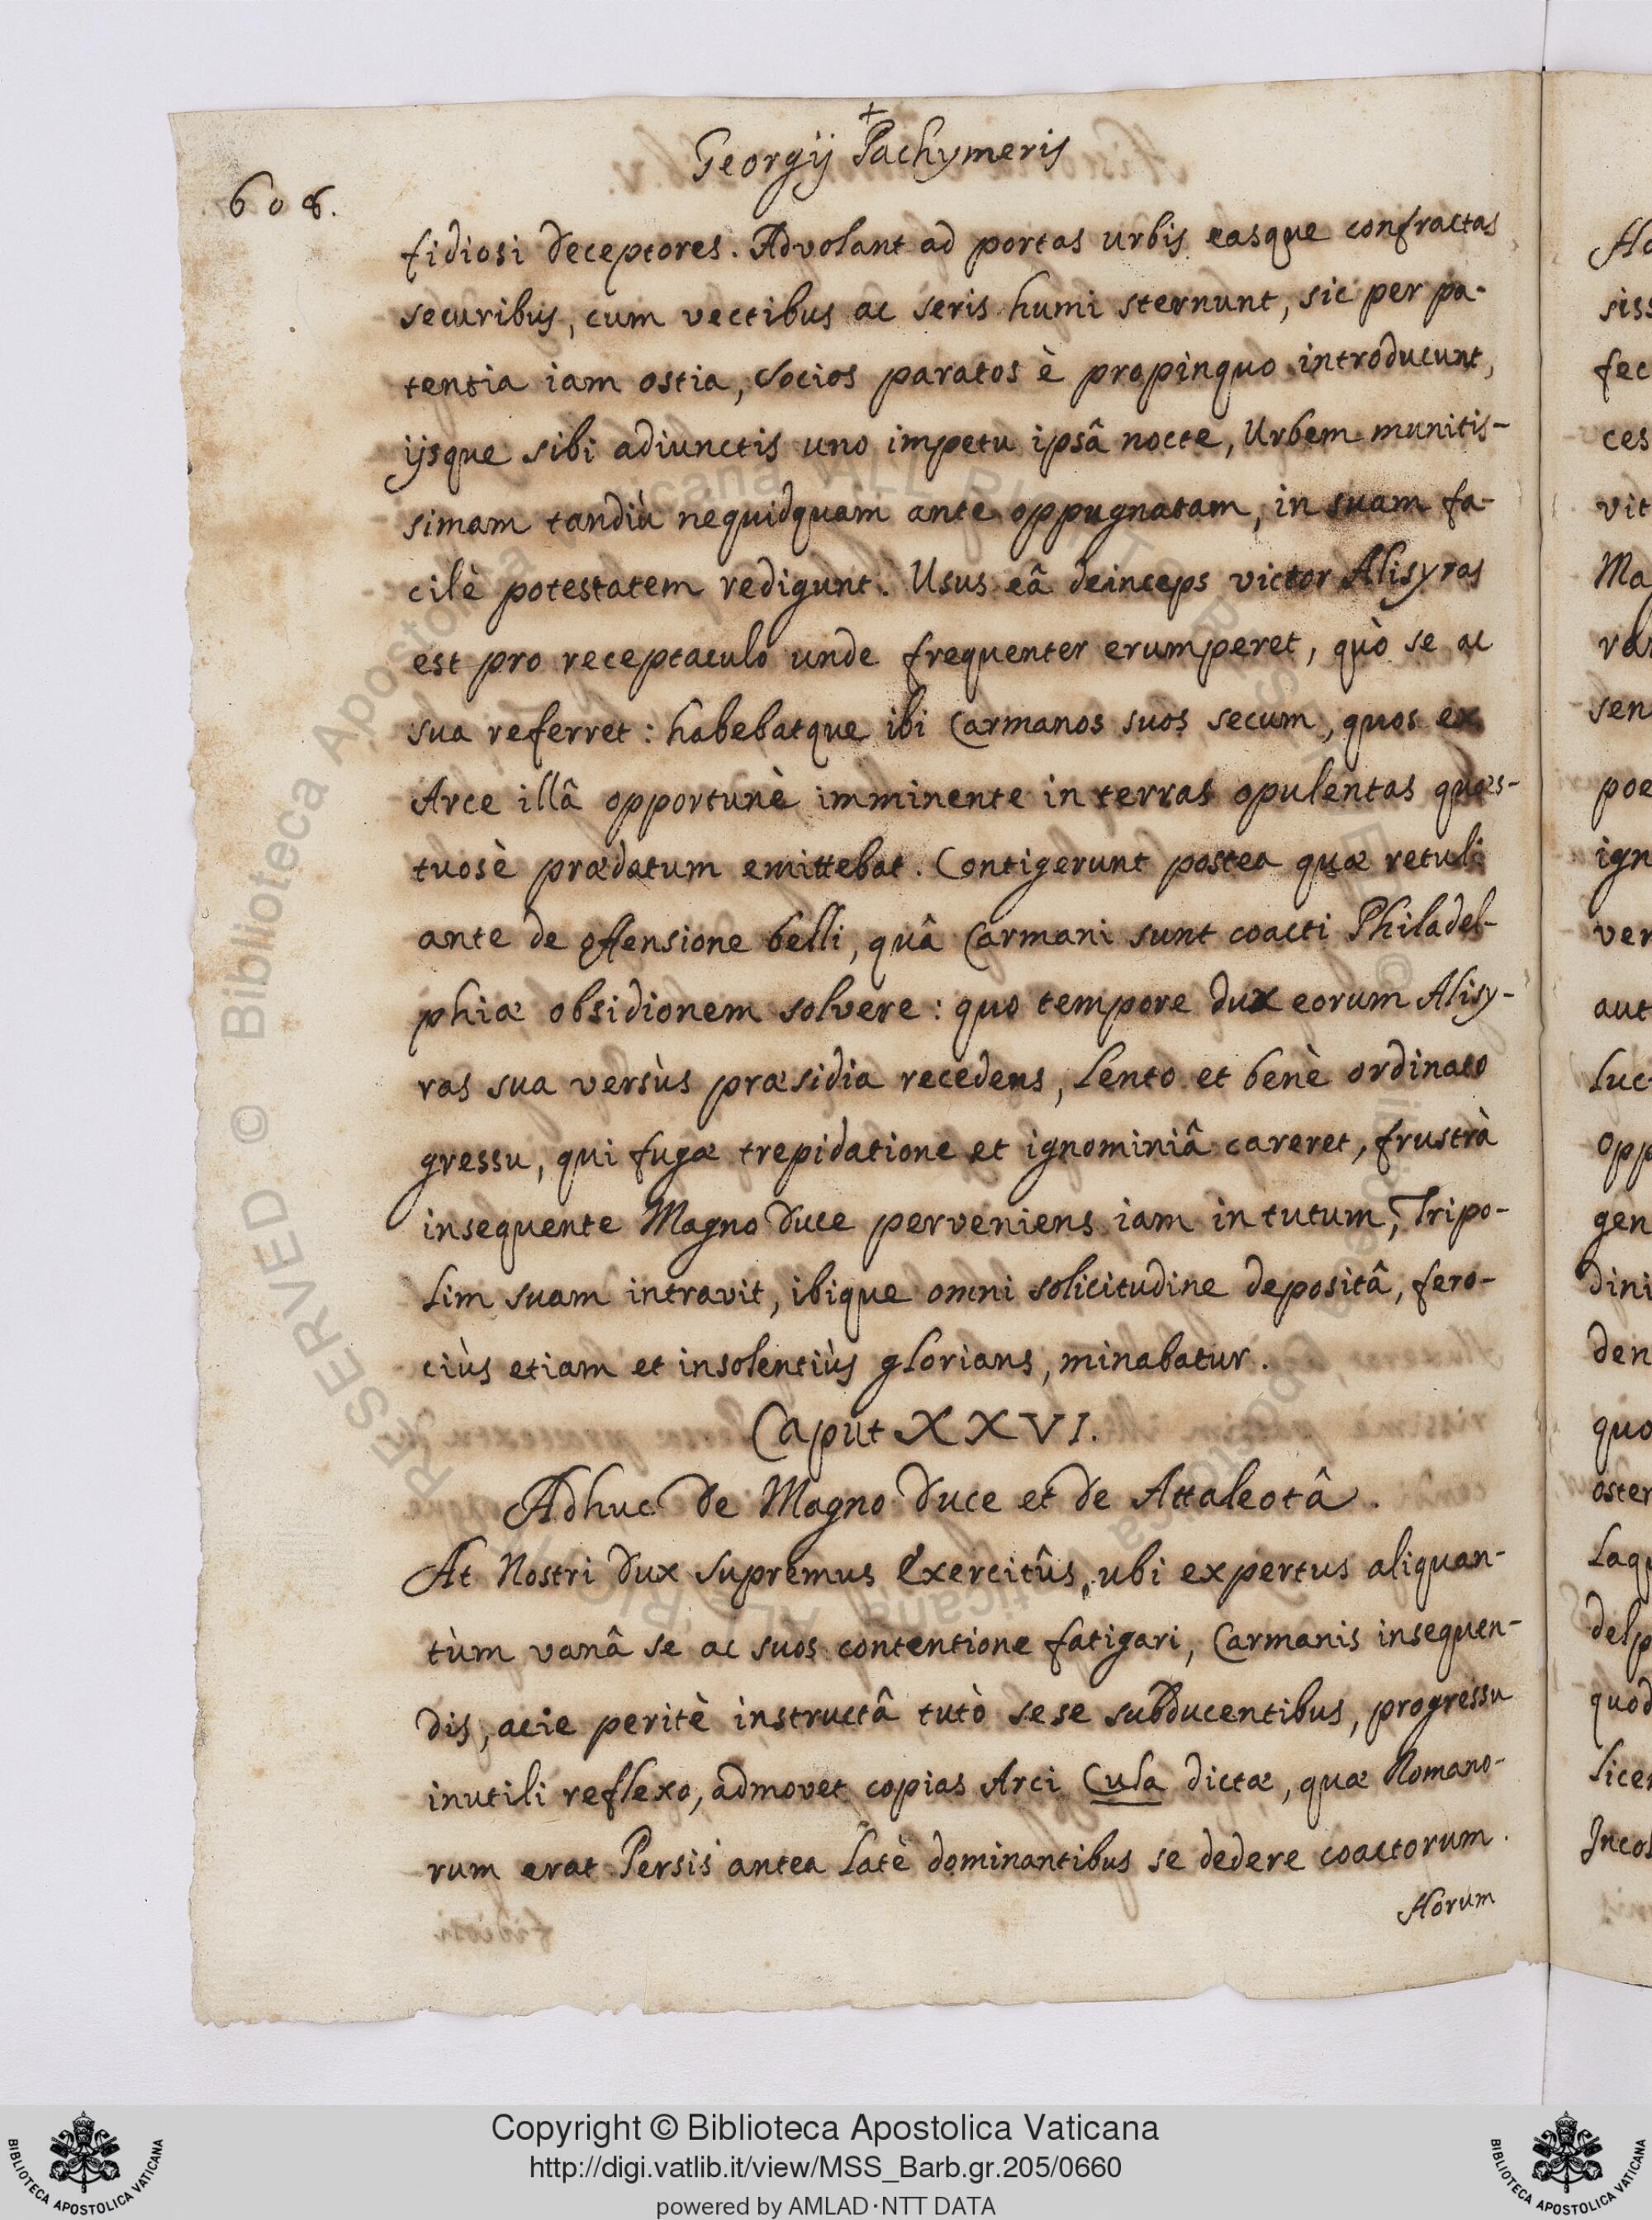 +
Georgij Pachymeris
608.
fidiosi deceptores. Advolant ad portas urbis easque confractas
securibus, cum vectibus ac seris humi sternunt, sic per pa-
tentia iam ostia, Socios paratos è propinquo introducunt,
ijsque sibi adiunctis uno impetu ipsâ nocte, Urbem munitis-
simam tandiù nequidquam ante oppugnatam, in suam fa-
cilè potestatem redigunt. Usus eâ deinceps victor Alisyras
est pro receptaculo unde frequenter erumperet, quò se ac
sua referret: habebatque ibi Carmanos suos secum, quos ex
Arce illâ opportunè imminente in terras opulentas quæs-
tuosè prædatum emittebat. Contigerunt postea quæ retuli
ante de offensione belli, quâ Carmani sunt coacti Philadel-
phiæ obsidionem solvere: quo tempore dux eorum Alisy-
ras sua versùs præsidia recedens, lento et benè ordinato
gressu, qui fugæ trepidatione et ignominiâ careret, frustrà
insequente Magno Duce perveniens iam in tutum, Tripo-
lim suam intravit, ibique omni solicitudine depositâ, fero-
ciùs etiam et insolentiùs glorians, minabatur.
Caput XXVI.
Adhuc de Magno Duce et de Attaleotâ.
At Nostri Dux Supremus Exercitûs, ubi expertus aliquan-
tùm vanâ se ac suos contentione fatigari, Carmanis insequen-
dis, acie peritè instructâ tutò sese subducentibus, progressu
inutili reflexo, admovet copias Arci Cula dictæ, quæ Romano-
rum erat Persis antea latè dominantibus se dedere coactorum.
Horum
sis
fec
ces
vit
Ma
sen
poe
ign
ver
aut
luc
opp
gen
dini
den
quo
delp
quod
Biblioteca Apostolica Vaticana ALL RIGHTS RESERVED ©
Copyright © Biblioteca Apostolica Vaticana
http://digi.vatlib.it/view/MSS_Barb.gr.205/0660
powered by AMLAD·NTT DATA
BIBLIOTECA APOSTOLICA VATICANA
BIBLIOTECA APOSTOLICA VATICANA